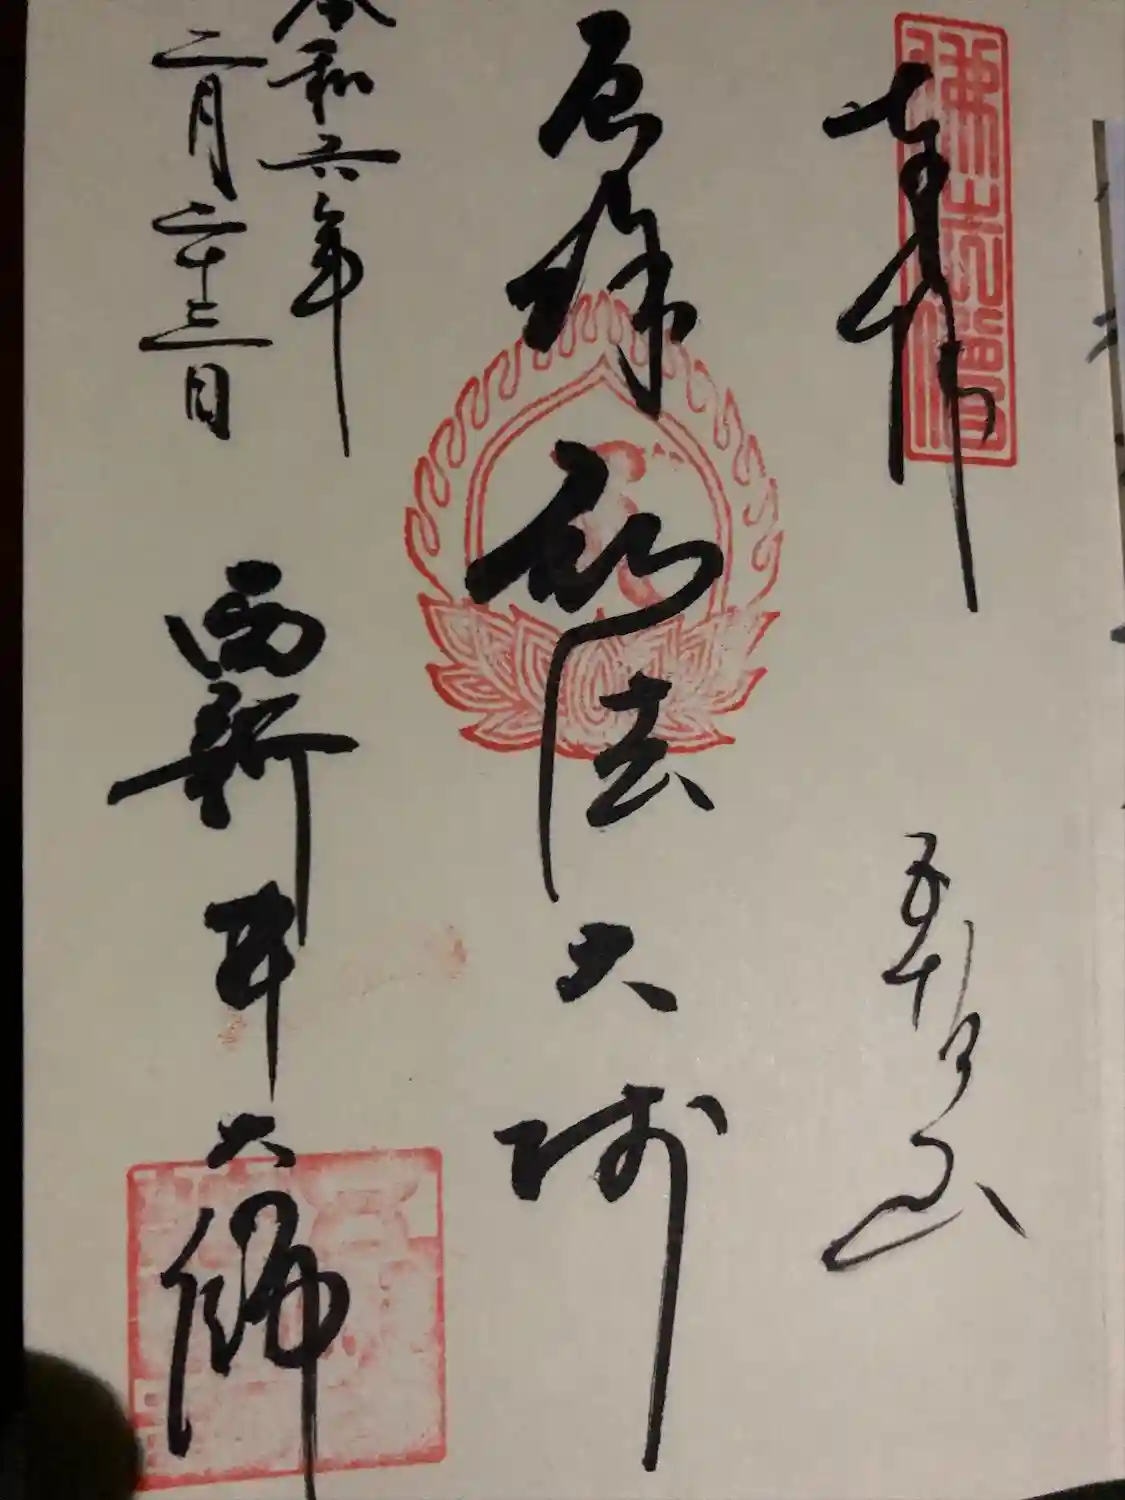 奉拝
五智山
厄除 弘法大師
令和六年
二月二十三日
西新井大師